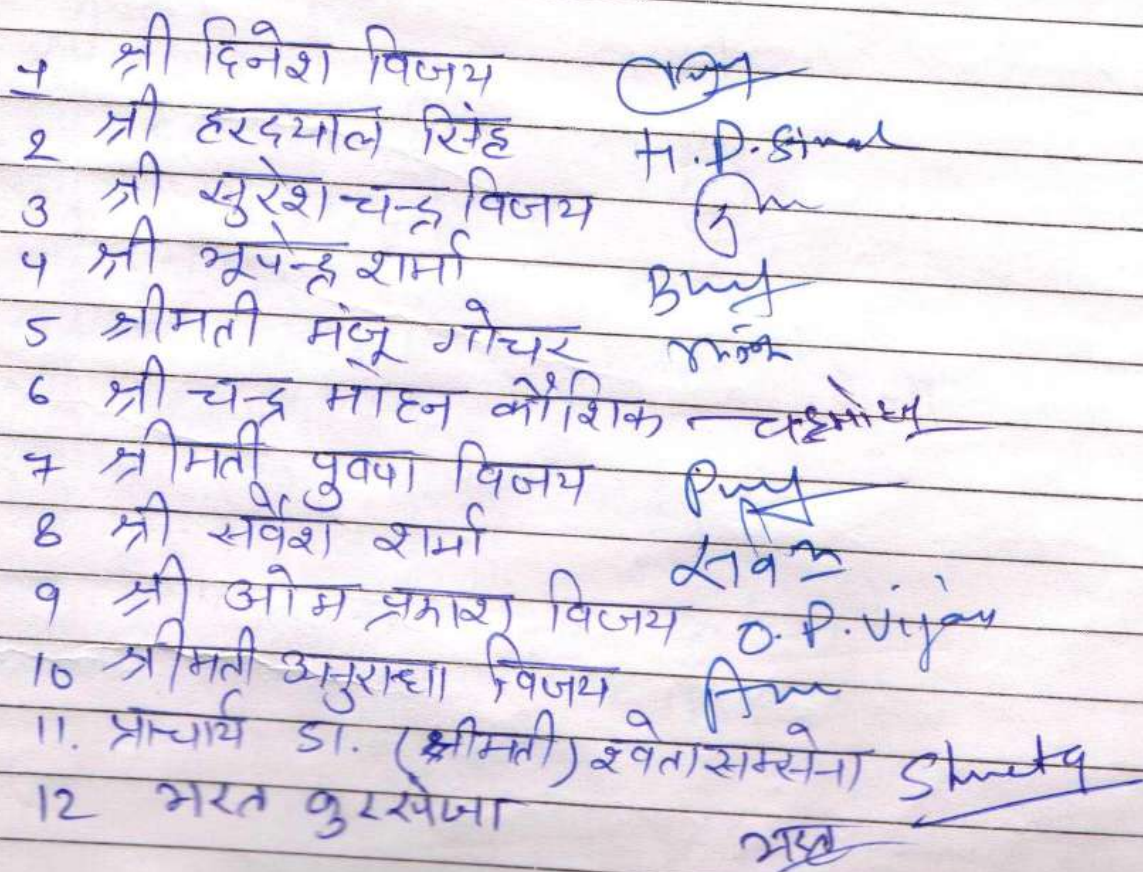 1 श्री दिनेश विजय
2 श्री हरदयाल सिंह H.D. Singh
3 श्री सुरेश चन्द्र विजय
4 श्री भूपेन्द्र शर्मा
5 श्रीमती मंजू गोचर
6 श्री चन्द्र मोहन कौशिक
7 श्रीमती पुष्पा विजय
8 श्री सर्वेश शर्मा
9 श्री ओम प्रकाश विजय O.P. Vijay
10 श्रीमती अनुराधा विजय
11. प्राचार्य डा. (श्रीमती) श्वेता सक्सेना Shweta
12 भरत